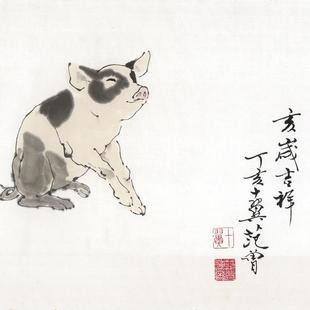 亥岁吉祥
丁亥十翼范曾